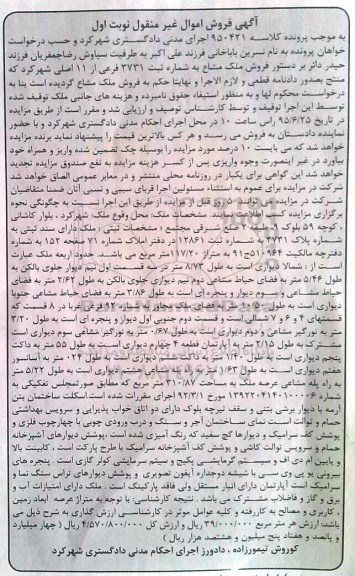 آگهی فروش اموال غیر منقول نوبت اول
به موجب پرونده کلاسه ۹۵۰۴۲۱ اجرای مدنی دادگستری شهرکرد و حسب درخواست
خواهان پرونده به نام نسرین باباخانی فرزند علی اکبر به طرفیت سیاوش رضاجعفریان فرزند
حیدر دائر بر دستور فروش ملک مشاع به شماره ثبت ۳۷۳۱ فرعی از ۱۱ اصلی شهرکرد که
منتج بصدور دادنامه قطعی و لازم الاجرا و نهایتا حکم به فروش ملک مشاع گردیده است بنا به
درخواست محکوم لها و به منظور استیفاء حقوق نامبرده و هزینه های جانبی ملک توقیف شده
توسط این اجرا توقیف و توسط کارشناس توصیف و ارزیابی شد و مقرر است از طریق مزایده
در تاریخ ۹۵/۶/۲۵ راس ساعت ۱۰ در محل اجرای احکام مدنی دادگستری شهرکرد و با حضور
نماینده دادستان به فروش می رسد و هر کس بالاترین قیمت را پیشنهاد نماید برنده مزایده
خواهد شد که می بایست ۱۰ درصد مورد مزایده را بوسیله چک تضمین شده واریز و همراه خود
بیاورد در غیر اینصورت وجوه واریزی پس از کسر هزینه مزایده به نفع صندوق مزایده تجدید
خواهد شد این گواهی برای یکبار در روزنامه محلی منتشر و در معابر عمومی الصاق خواهد شد
شرکت در مزایده برای عموم به استثناء مسئولین اجرا قربای سببی و نسبی آنان ضمنا متقاضیان
شرکت در مزایده می توانند ۵ روز قبل از مزایده از طریق این اجرا نسبت به چگونگی نحوه
برگزاری مزایده کسب اطلاع نمایند. مشخصات ملک: محل وقوع ملک: شهرکرد ، بلوار کاشانی
، کوچه ۵۹ پلاک ۹ طبقه ۲ ضلع شرقی مجتمع ؛ مشخصات ثبتی : ملک دارای سند ثبتی به
شماره پلاک ۳۷۳۱ به شماره ثبت ۱۲۸۶۱ در دفتر املاک شماره ۷۱ صفحه ۱۵۲ به شماره
دفترچه مالکیت ۵۱۰۹۶۴ج۹۱ به متراژ ۱۱۷/۲۰ متر مربع می باشد. حدود اربعه ملک عبارت
است از : شمالا دیواری است به طول ۸/۷۳ متر در سه قسمت اول نیم دیوار جلوی بالکن به
طول ۵/۴۶ متر به فضای حیاط مشاعی دوم نیم دیواری جلوی بالکن به طول ۲/۶۲ متر به فضای
حیاط مشاعی و سوم دیوار و پنجره ای است به طول ۲/۸۶ متر به فضای حیاط مشاعی جنوبا
قسمتهای ۴ و ۶ و ۷ شمالی است و قسمت دوم جنوبی اول دیوار و پنجره ای به طول ۳/۲۰
متر به نورگیر مشاعی و دوم دیواری است به طول ۰/۶۷ متر به نورگیر مشاعی سوم دیواری است
مشترک به طول ۲/۱۵ متر به آپارتمان قطعه ۴ چهارم دیواری است به طول ۵۵ متر به داکت
پنجم دیواری است به طول ۱/۴۰ متر به داکت ششم دیواری است به طول ۰۲۴ متر به آسانسور
هفتم دیواری است به طول ۱/۶۳ متر به راه پله مشاعی هشتم دیواری است به طول ۵/۲۲ متر
به راه پله مشاعی عرصه ملک به مساحت ۳۱۰/۸۷ متر مربع که مطابق صورتمجلس تفکیکی به
شماره ۱۳۹۲۲۰۴۱۴۰۱۰۰۰۰۶ مورخ ۹۲/۳/۱ اجرای مقررات شده است اسکلت ساختمان بتن
آرمه با دیوار برشی بتنی و سقف تیرچه بلوک دارای دو اتاق خواب پذیرایی و سرویس بهداشتی
حمام و توالت است نمای ساختمان آجر و سنگ و درب ورودی چوبی با چهارچوب فلزی و
پوشش کف سرامیک و دیوارها گچ سفید که رنگ آمیزی شده است،پوشش دیوارهای آشپزخانه
حمام و سرویس توالت کاشی و پوشش کف آشپزخانه سرامیک با طرح پارکت است ، کابینت بالا
و پایین ام دی اف و سیستم گرمایشی پکیج و سیتم سرمایشی کولر گازی است . پنجره های
بیرونی یو پی وی سی با شیشه دوجداره آیفون تصویری و پوشش دیوارهای تراس سنگ نما و
سرامیک است آپارتمان دارای انبار مستقل ولی فاقد پارکینگ است ، ملک دارای امتیازات آب و
برق و گاز و فاضلاب مشترک می باشد . نتیجه کارشناسی: با توجه به متراژ عرصه ابعاد زمین
، کاربری و مصالح به کاررفته و کلیه عوامل موثر در کارشناسی ارزش گذاری به شرح ذیل می
باشد: ارزش هر متر مربع ۳۹/۰۰۰/۰۰۰ ریال و ارزش کل ۴/۵۷۰/۸۰۰/۰۰۰ ریال ( چهار میلیارد
و پانصد و هفتاد پنج میلیون و هشتصد هزار ریال )
کوروش تیمورزاده ، دادورز اجرای احکام مدنی دادگستری شهرکرد